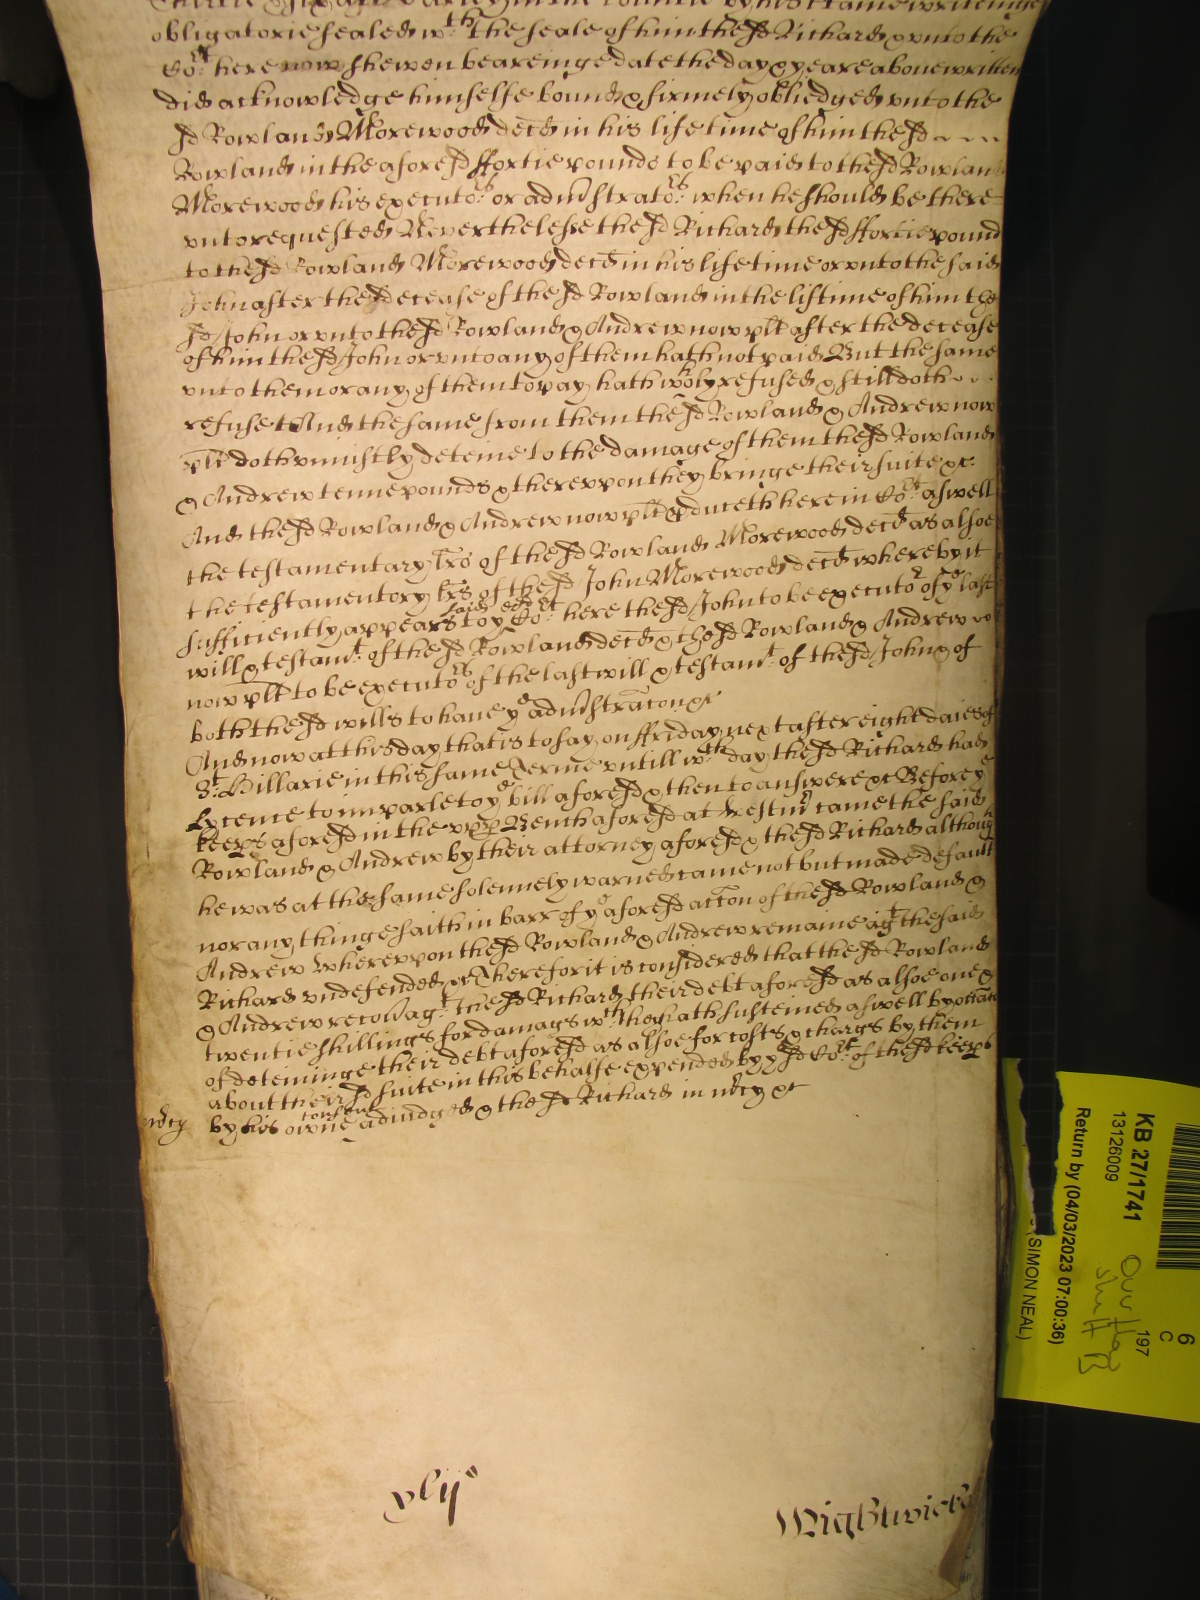 obligatorie sealed wth the seale of him the sd Richard & unto the
Cort here now shewen beareinge date the day & yeare above written
did acknowledge himselfe bound & firmely obliedged unto the
sd Rowland Morewood decd in his life time of him the sd
Rowland in the aforesd ffortie pounds to be paid to the sd Rowland
Morewood his executors or adminstrators when he should be there
unto requested Neverthelesse the sd Richard the sd ffortie pound
to the sd Rowland Morewood decd in his life time or unto the said
John after the decease of the sd Rowland in the liftime of him the
sd John or unto the sd Rowland & Andrew now plt after the decease
of him the sd John or unto any of them hath not paid But the same
unto them or any of them to pay hath wholy refused & still doth
refuse And the same from them the sd Rowland & Andrew now
plt doth uniustly deteine to the damage of them the sd Rowland
& Andrew tenne pounds & thereupon they bringe their suite &c
And the sd Rowland & Andrew now plt produceth here in Cort aswell
the testamentary lres of the sd Rowland Morewood decd as alsoe
the testamentory lres of the sd John Morewood decd whereby it
sufficiently appears to ye said Cort here the sd John to be executor of ye last
will & testamt of the sd Rowland decd & the sd Rowland & Andrew
now plt to be executors of the last will & testamt of the sd John & of
both the sd wills to have ye adminstracon &c
And now at this day that is to say on ffriday next after eight daies of
St Hillarie in this same Terme untill wch day the sd Richard had
Lycence to imparle to ye bill aforesd & then to answere &c Before ye
keeps aforesd in the upper Bench aforesd at Westmr came the said
Rowland & Andrew by their attorney aforesd & the sd Richard although
he was at the same solemnely warned came not but made default
nor any thinge saith in barr of ye aforesd accon of the sd Rowland &
Andrew Whereupon the sd Rowland & Andrew remaine agt the said
Richard undefended &c Therefor it is considered that the sd Rowland
& Andrew recov agt the sd Richard their debt aforesd as alsoe one &
twentie shillings for damags wch they hath susteined aswell by occasion
of deteininge their debt aforesd as alsoe for costs & chargs by them
about their sd suite in this behalfe expended by ye sd Cort of the sd keeps
by his owne consent adiudged & the sd Richard in mercy &c
mercy
xlijs
Wightwick
KB 27/1741
13126009
Return by (04/03/2023 07:00:36)
(SIMON NEAL)
6
C
197